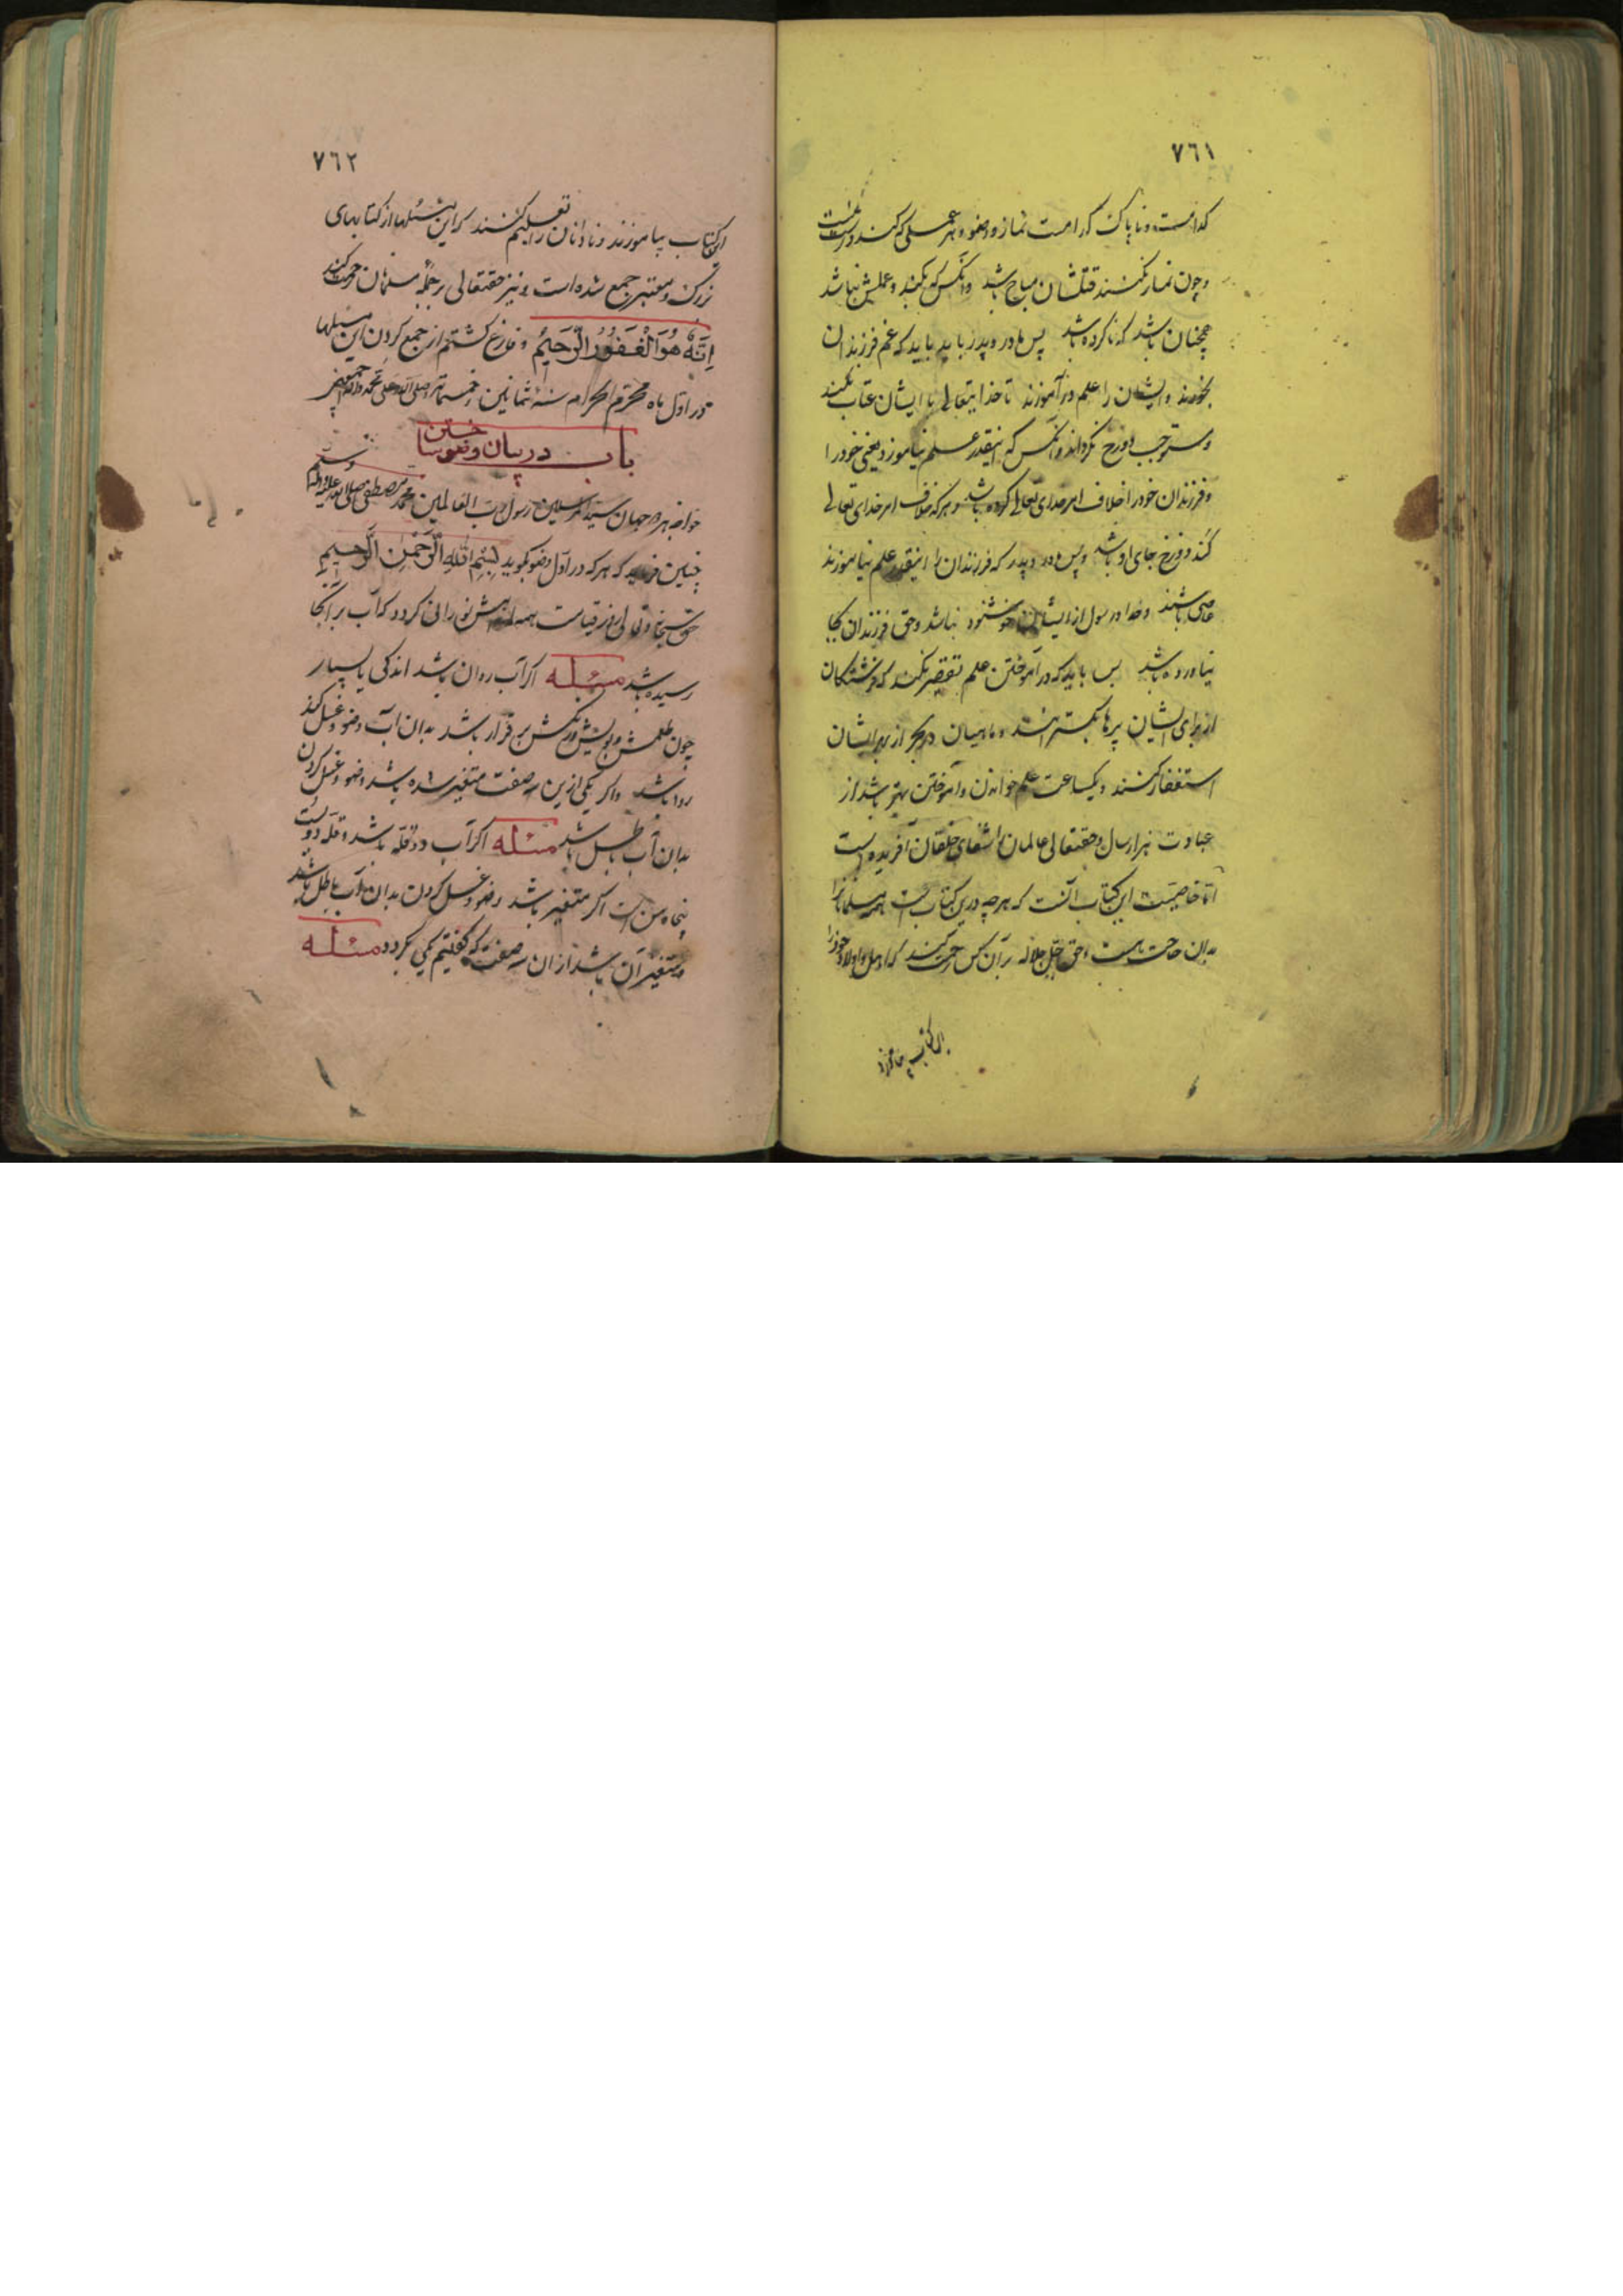 ٧٦١
کدامست و ناپاک کدامست نماز و وضو و هر عملی که کنند درست
و چون نماز نکنند قتلشان مباح باشد و آنکس که بکند و عملش نباشد
همچنان باشد که ناکرده باشد پس مادر و پدر باید باید که غم فرزندان
بخورند و ایشان را علم در آموزند تا خدایتعالی با ایشان عتاب نکند
و مستوجب دوزخ نگرداند و آنکس که اینقدر علم نیاموزد یعنی خود را
و فرزندان خود را خلاف امر خدای تعالی کرده باشد و هر که خلاف امر خدای تعالی
کند دوزخ جای او باشد و پس مادر و پدر که فرزندان را اینقدر علم نیاموزند
عاصی باشند و خدا و رسول از ایشان خوشنود نباشد و حق فرزندان بجا
نیاورده باشد پس باید که در آموختن علم تقصیر نکنند که فرشتگان
از برای ایشان پرها بگسترانند و ماهیان در بحر از بهر ایشان
استغفار کنند و یکساعت علم خواندن و آموختن بهتر باشد از
عبادت هزار سال و حقتعالی عالمان را شفای خلقان آفریده است
اما خاصیت این کتاب آنست که هر چه درین کتابست همه مسلمانرا
بدان حاجت هست و حق جل جلاله بر آن کس رحمت کند که اهل و اولاد خود را
این کتاب بیاموزد
٧٦٢
این کتاب بیاموزند و نادانان را تعلیم کنند که این مسئلها از کتابهای
بزرگ و معتبر جمع شده است و نیز حقتعالی بر جمله مسلمانان رحمت کند
اِنَّهُ هُوَ الْغَفُورُ الرَّحیمُ و فارغ گشتم از جمع کردن این مسئلها
در اول ماه محرم الحرام سنهٔ ثمانین و خمسمائه صلی الله علی محمد و اله اجمعین
باب در بیان وضو ساختن
خواجه هر دو جهان سید المرسلین رسول رب العالمین محمد مصطفی صلی الله علیه و اله وسلم
چنین فرماید که هر که در اول وضو بگوید بِسْمِ اللّٰهِ الرَّحْمٰنِ الرَّحیمِ
حق سبحانه و تعالی روز قیامت همه اندامش نورانی گردد که آب بر آنجا
رسیده باشد مسئله اگر آب روان باشد اندکی یا بسیار
چون طعمش و بویش و رنگش بر قرار باشد بدان آب وضو و غسل کند
روا باشد و اگر یکی ازین سه صفت متغیر شده باشد وضو و غسل کردن
بدان آب باطل باشد مسئله اگر آب دو قله باشد و قله دویست
پنجاه من است اگر متغیر باشد وضو و غسل کردن بدان آب باطل باشد
و متغیر آن باشد از آن سه صفت که گفتیم یکی بگردد مسئله